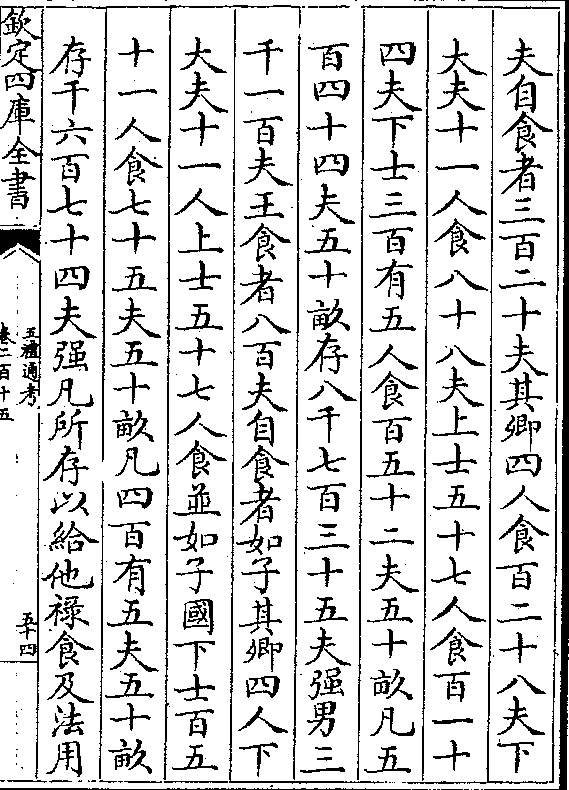 夫自食者三百二十夫其卿四人食百二十八夫下
大夫十一人食八十八夫上士五十七人食百一十
四夫下士三百有五人食百五十二夫五十畝凡五
百四十四夫五十畝存八千七百三十五夫强男三
千一百夫王食者八百夫自食者如子其卿四人下
大夫十一人上士五十七人食並如子國下士百五
十一人食七十五夫五十畝凡四百有五夫五十畝
存千六百七十四夫强凡所存以給他祿食及法用
欽定四庫全書
五禮通考
卷二百十五
五十四